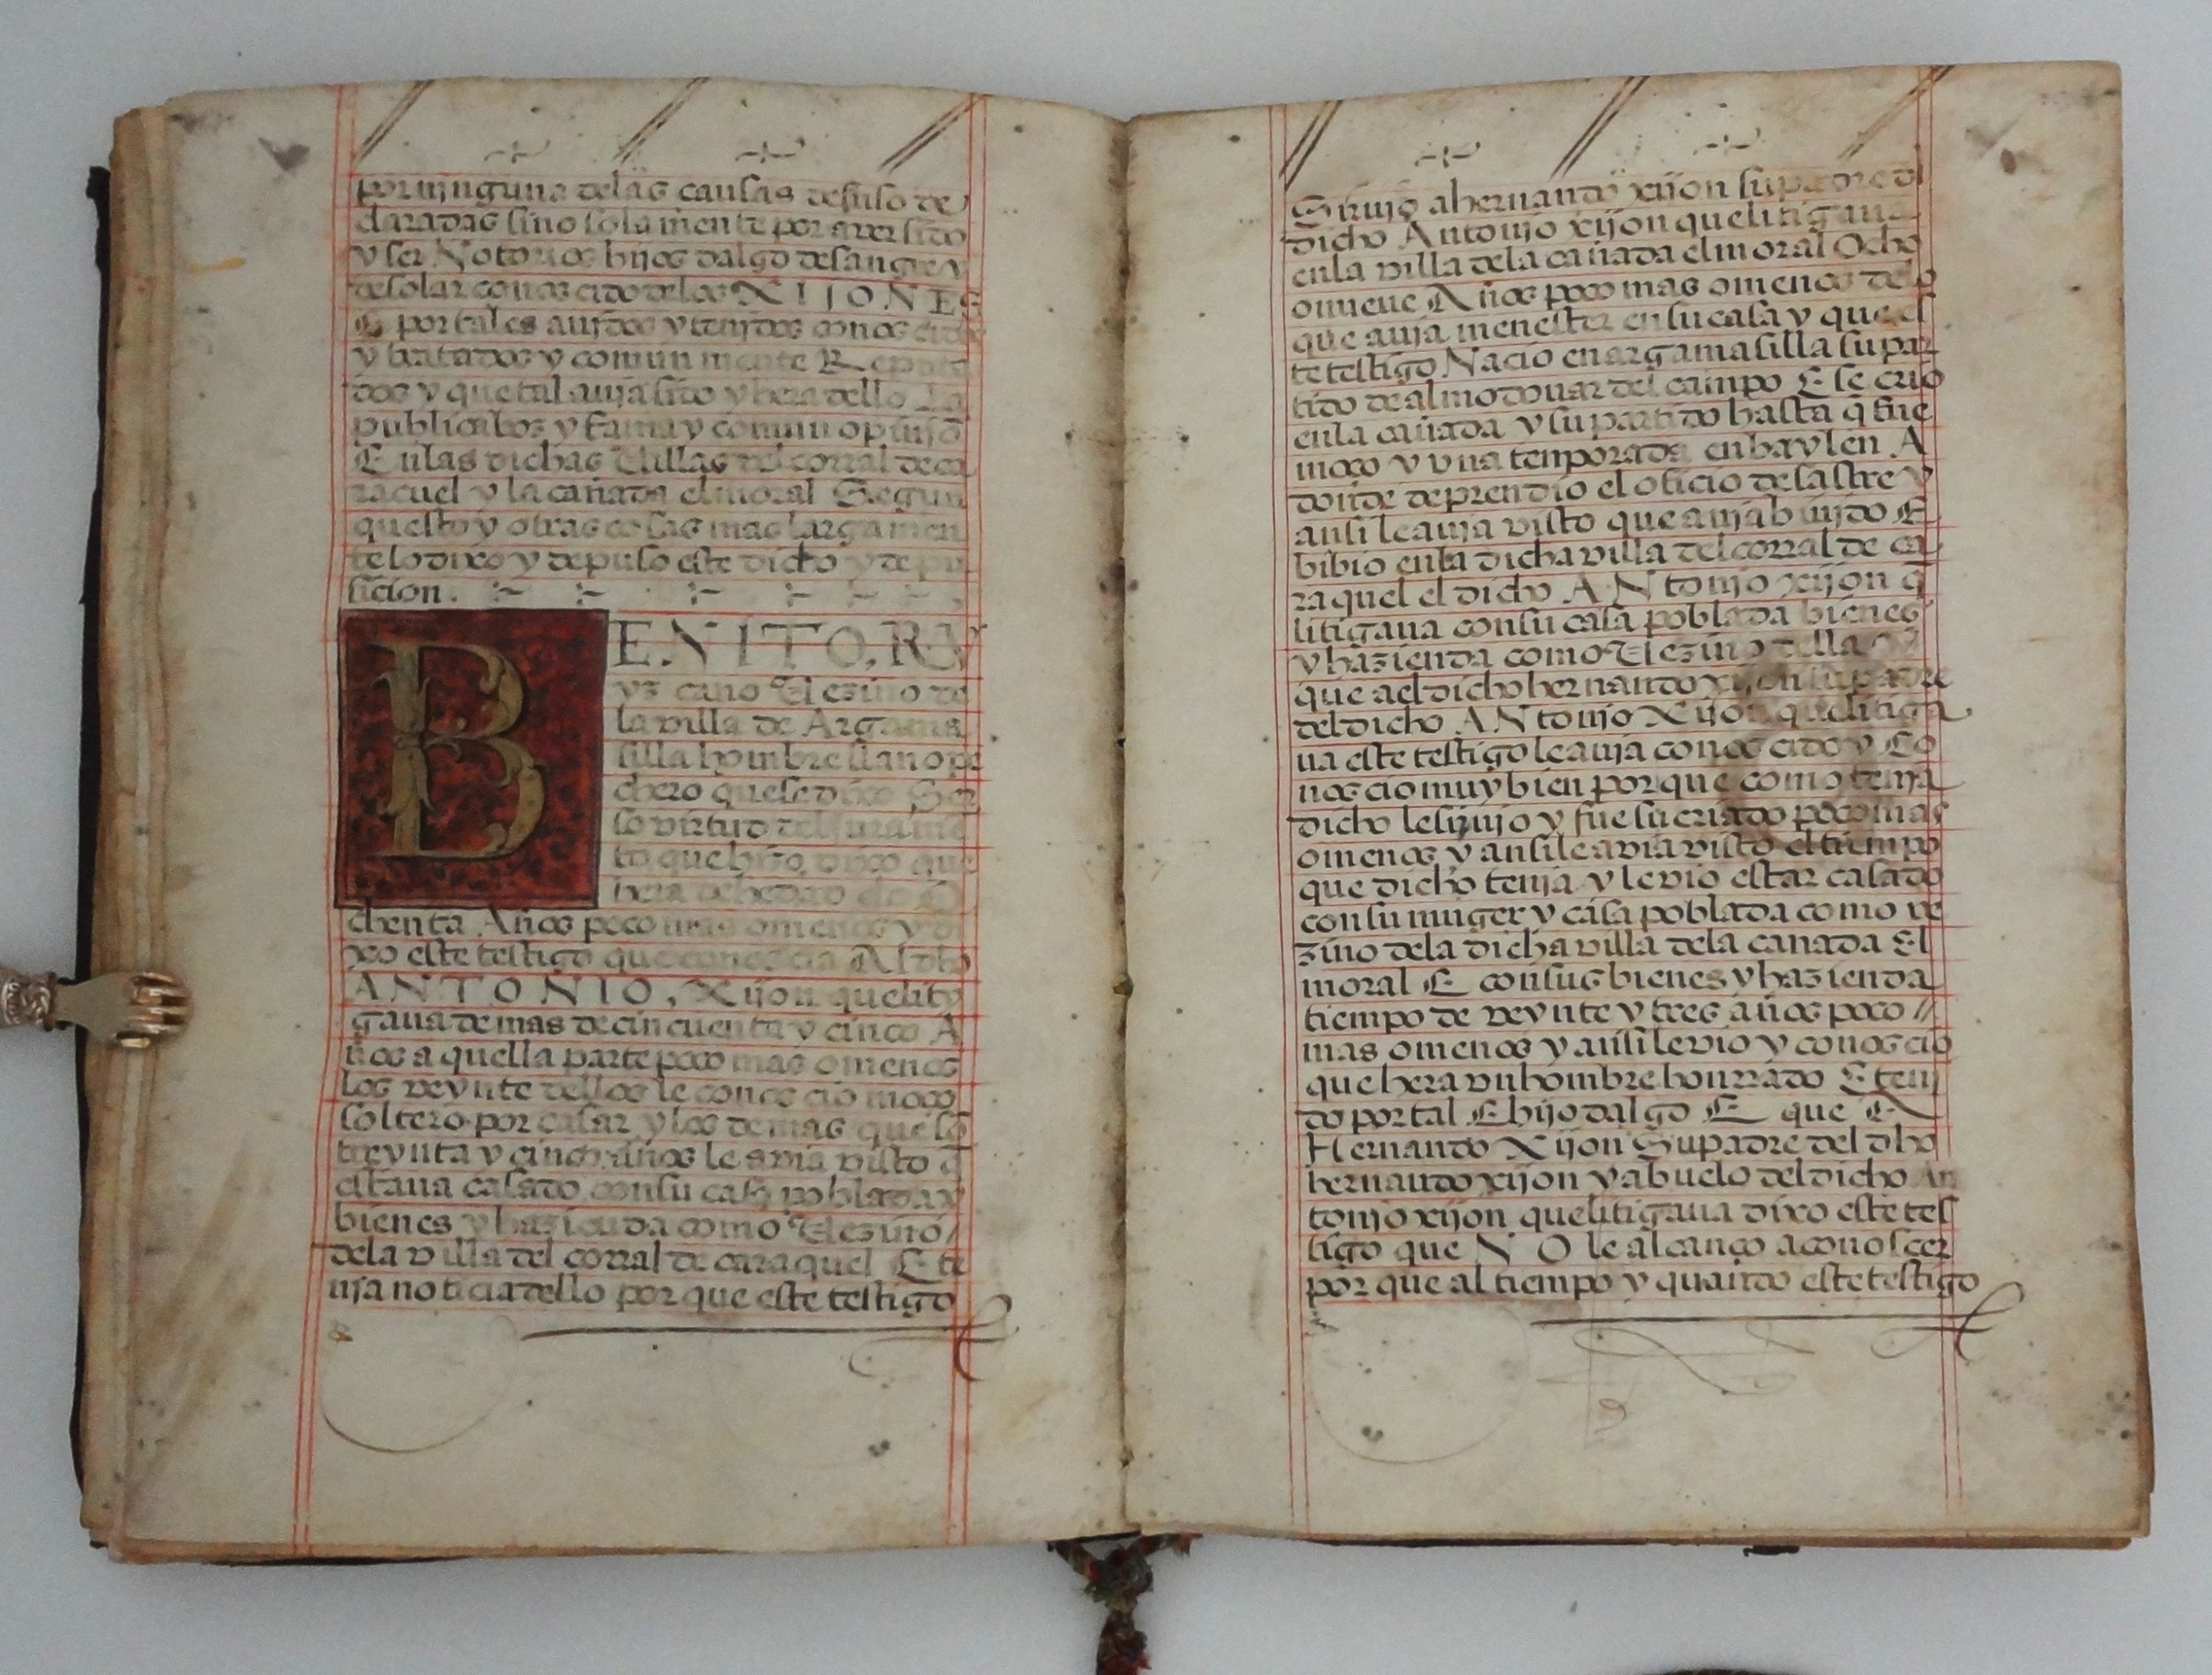 por ninguna delas causas desuso de
claradas sino sola mente por aver sido
y ser Notorios hijos dalgo de sangre y
de solar conoscido delos XIJONES
E por tales auidos y tenidos conoscidos
y tratados y comun mente Reputa
dos y que tal auia sido y hera dello La
publica boz y fama y comun opinion
En las dichas Villas del corral de ca
racuel y la cañada el moral Segun
questo y otras cosas mas larga men
te lo dixo y depuso este dicho y depu
sicion.
BENITO, RU
yz cano Vezino de
la villa de Argama
silla hombre llano pe
chero que se dixo Ser
so virtud del jurame
to que hizo, dixo que
hera de hedad de O
chenta Años poco mas omenos y di
xo este testigo que conoscia Al dho
ANTONIO, Xijon que lity
gaua de mas de cincuenta y cinco A
ños a quella parte poco mas omenos
los veynte dellos le conoscio moço
soltero por casar y los demas que so
treynta y cinco años le avia visto q̄
estaua casado con su casa poblada y
bienes y hazienda como Vezino
dela villa del corral de caraquel E te
nja noticia dello por que este testigo
Siruio a hernando xijon su padre dl
dicho Antonjo xijon que litigaua
enla villa dela cañada el moral Ocho
o nueue Años poco mas omenos delo
que auja menester en su casa y que es
te testigo Nacio en argamasilla su par
tido de almodouar del campo E se crio
enla cañada y su partido hasta q̄ fue
moço y vna temporada en baylen A
donde deprendio el oficio de sastre y
ansi le auja visto que auja biujdo E
bibio enla dicha villa del corral de ca
raquel el dicho ANtonjo xijon q̄
litigaua con su casa poblada bienes
y hazienda como Vezino della
que a el dicho hernando xijon su padre
del dicho ANtonjo Xijon que litiga
ua este testigo le auja conoscido y Co
noscio muy bien por que como tenja
dicho le siruio y fue su criado poco mas
omenos y ansi le avia visto el tiempo
que dicho tenja y le vio estar casado
con su muger y casa poblada como ve
zino dela dicha villa dela canada El
moral E con sus bienes y hazienda
tiempo de veynte y tres años poco //
mas omenos y ansi le vio y conoscio
que hera vn hombre honrrado E teni
do por tal E hijo dalgo E que A
Hernando Xijon Su padre del dho
hernando xijon y abuelo del dicho An
tonjo xijon que litigaua dixo este tes
tigo que NO le alcanço a conoscer
por que al tiempo y quando este testigo